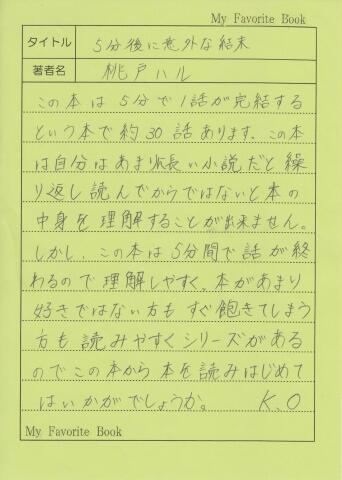 My Favorite Book
タイトル 5分後に意外な結末
著者名 桃戸ハル
この本は5分で1話が完結する
という本で約30話あります。この本
は自分はあまり長い小説だと繰
り返し読んでからではないと本の
中身を理解することが出来ません。
しかし、この本は5分間で話が終
わるので理解しやすく、本があまり
好きではない方もすぐ飽きてしまう
方も読みやすくシリーズがある
のでこの本から本を読みはじめて
はいかがでしょうか。 K.O
My Favorite Book